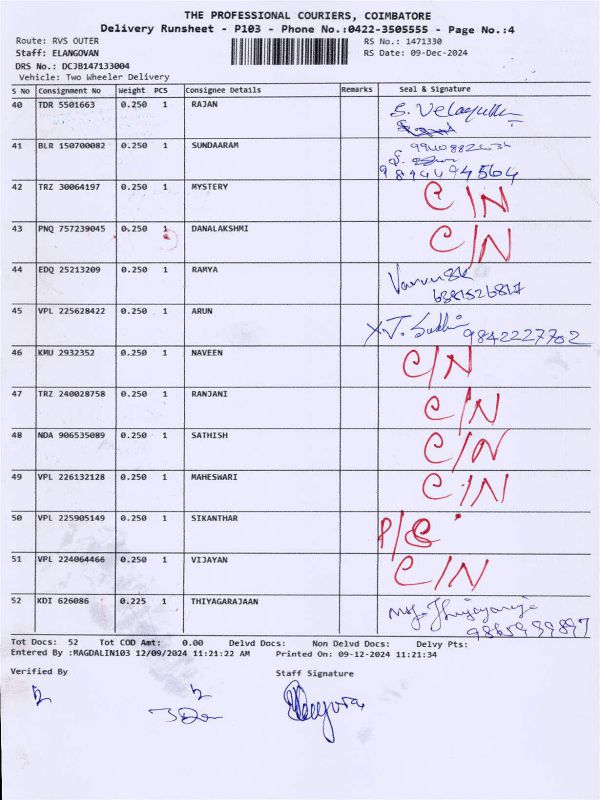 THE PROFESSIONAL COURIERS, COIMBATORE
Delivery Runsheet - P103 - Phone No.:0422-3505555 - Page No.:4
Route: RVS OUTER RS No.: 1471330
Staff: ELANGOVAN RS Date: 09-Dec-2024
DRS No.: DCJB147133004
Vehicle: Two Wheeler Delivery
S No Consignment No Weight PCS Consignee Details Remarks Seal & Signature
40 TDR 5501663 0.250 1 RAJAN
41 BLR 150700082 0.250 1 SUNDAARAM
9894494564
42 TRZ 30064197 0.250 1 MYSTERY C/N
43 PNQ 757239045 0.250 1 DANALAKSHMI C/N
44 EDQ 25213209 0.250 1 RAMYA
45 VPL 225628422 0.250 1 ARUN 9842227702
46 KMU 2932352 0.250 1 NAVEEN C/N
47 TRZ 240028758 0.250 1 RANJANI C/N
48 NDA 906535089 0.250 1 SATHISH C/N
49 VPL 226132128 0.250 1 MAHESWARI C/N
50 VPL 225905149 0.250 1 SIKANTHAR
51 VPL 224064466 0.250 1 VIJAYAN C/N
52 KDI 626086 0.225 1 THIYAGARAJAAN
Tot Docs: 52 Tot COD Amt: 0.00 Delvd Docs: Non Delvd Docs: Delvy Pts:
Entered By :MAGDALIN103 12/09/2024 11:21:22 AM Printed On: 09-12-2024 11:21:34
Verified By Staff Signature